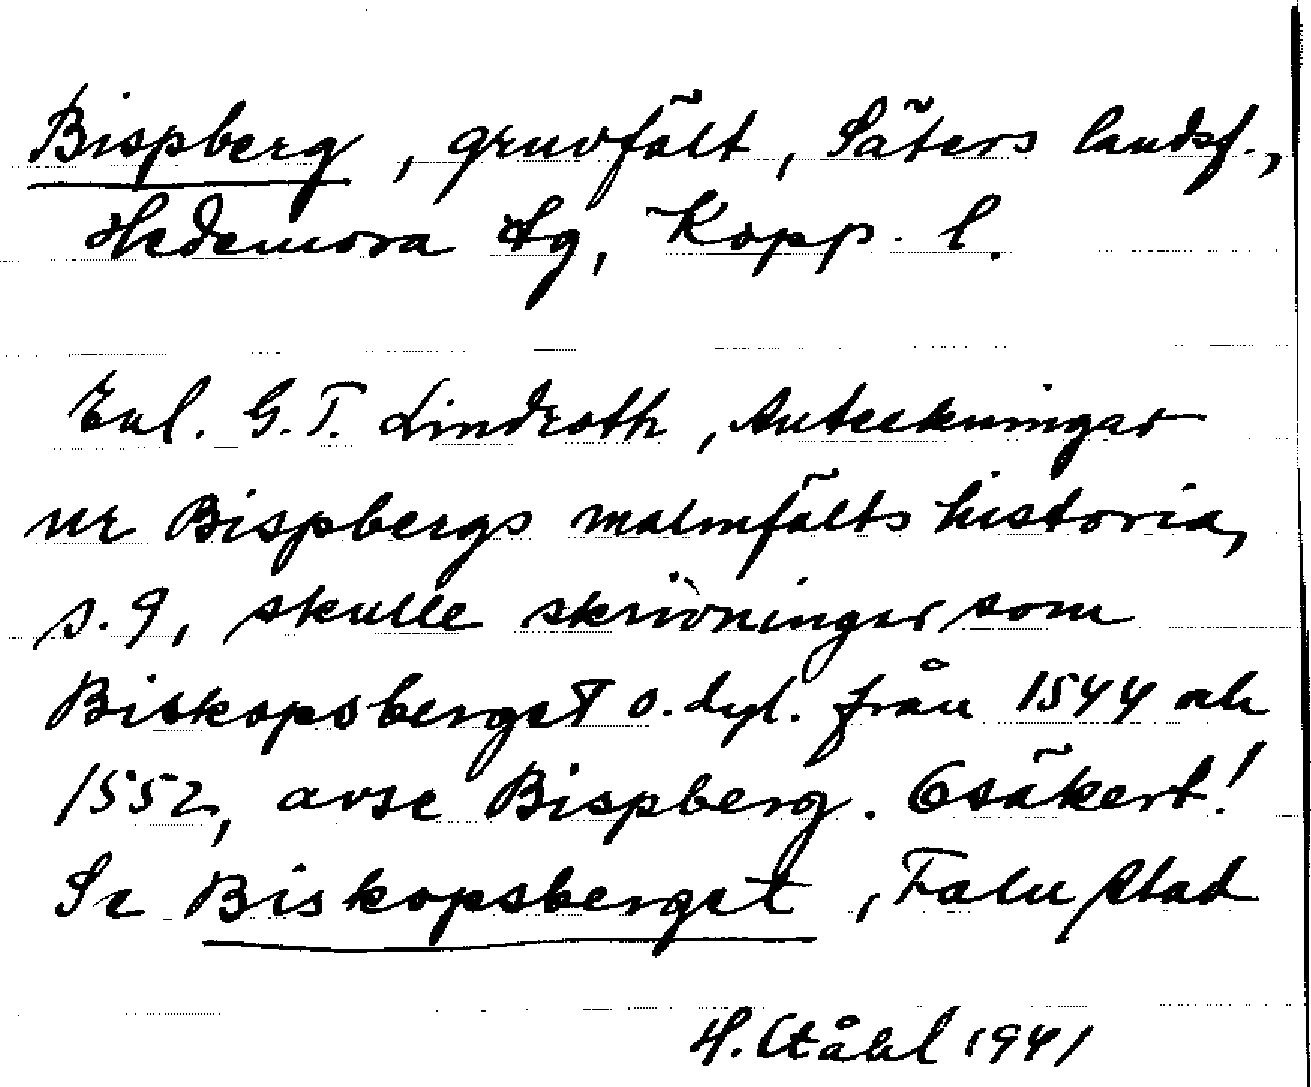 Bispberg, gruvfält, Säters landsf.,
Hedemora tg, Kopp. l.
Enl. G.T. Lindroth, Anteckningar
ur Bispbergs malmfälts historia,
s. 9, skulle skrivningar som
Biskopsberget o. dyl. från 1544 och
1552, avse Bispberg. Osäkert!
Se Biskopsberget, Falu stad
H. Ståhl 1941